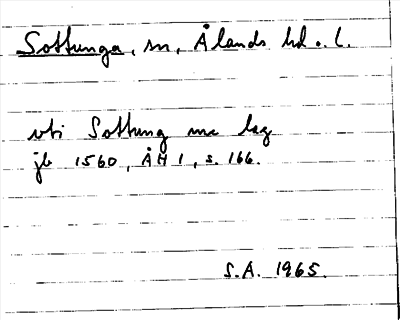 Sottunga, sn, Ålands hd o. l.
vti Sottung ma lag
jb 1560, ÅH 1, s. 166.
S.A. 1965.